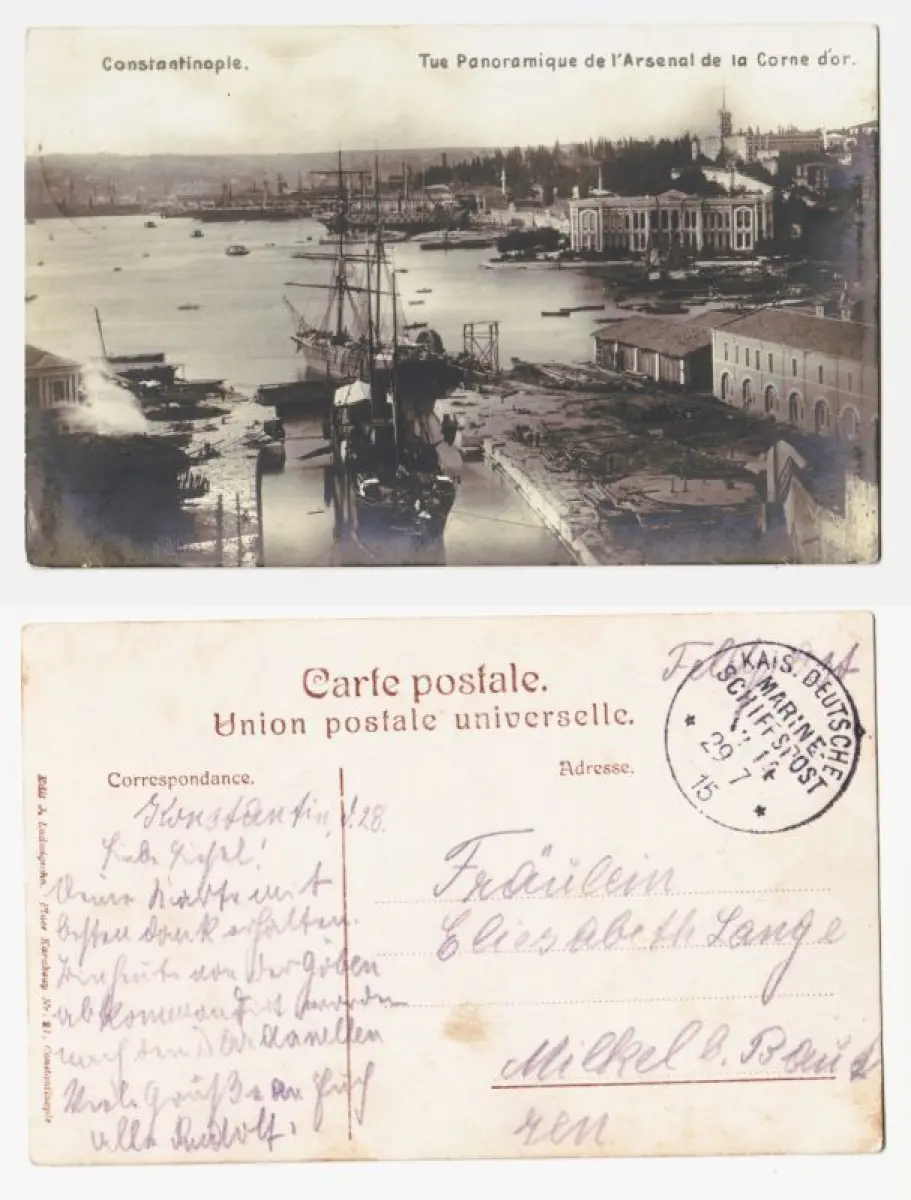 Constantinople.
Tue Panoramique de l'Arsenal de la Corne d'or.
Feldpost
KAIS. DEUTSCHE
MARINE-
SCHIFFSPOST
29 7
15
Carte postale.
Union postale universelle.
Correspondance.
Adresse.
Konstantin, d. 28.
Deine Karte mit
besten Dank erhalten.
Bin heute von der Göben
abkommandirt worden
nach den Dardanellen
Viele Grüße an Euch
alle Rudolf.
Fräulein
Elisabeth Lange
Milkel b. Baut
zen
Constantinople